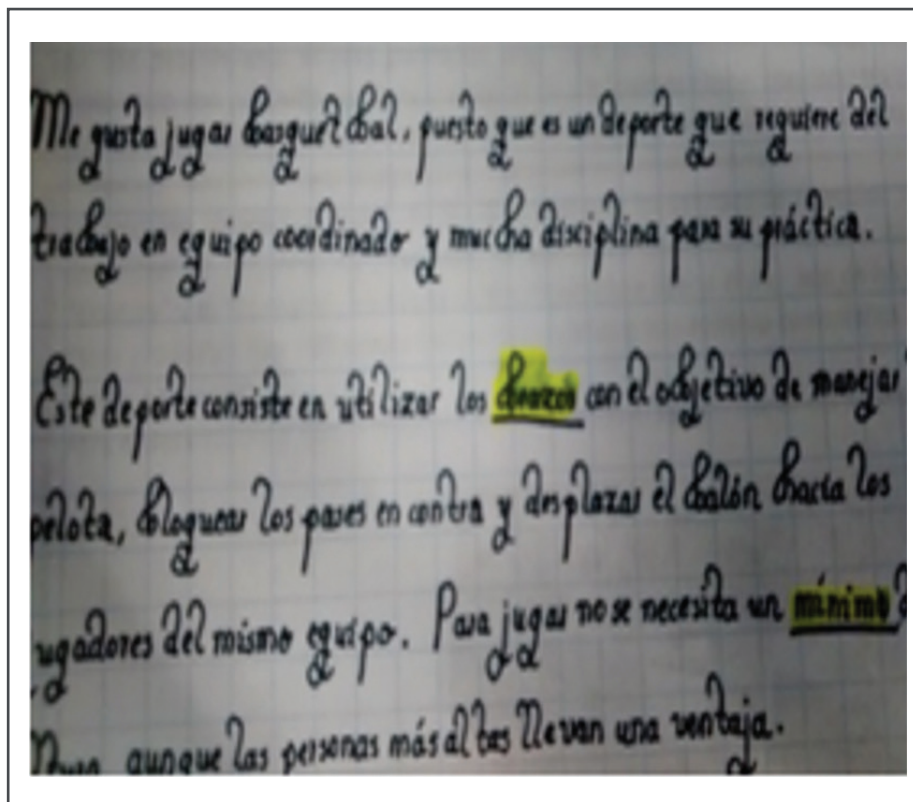 Me gusta jugar basquet bal, puesto que es un deporte que requiere del
trabajo en equipo coordinado y mucha disciplina para su práctica.
Este deporte consiste en utilizar los brazos con el objetivo de manejar
pelota, bloquear los pases en contra y desplazar el balón hacia los
jugadores del mismo equipo. Para jugar no se necesita un mínimo
aunque las personas más altas llevan una ventaja.